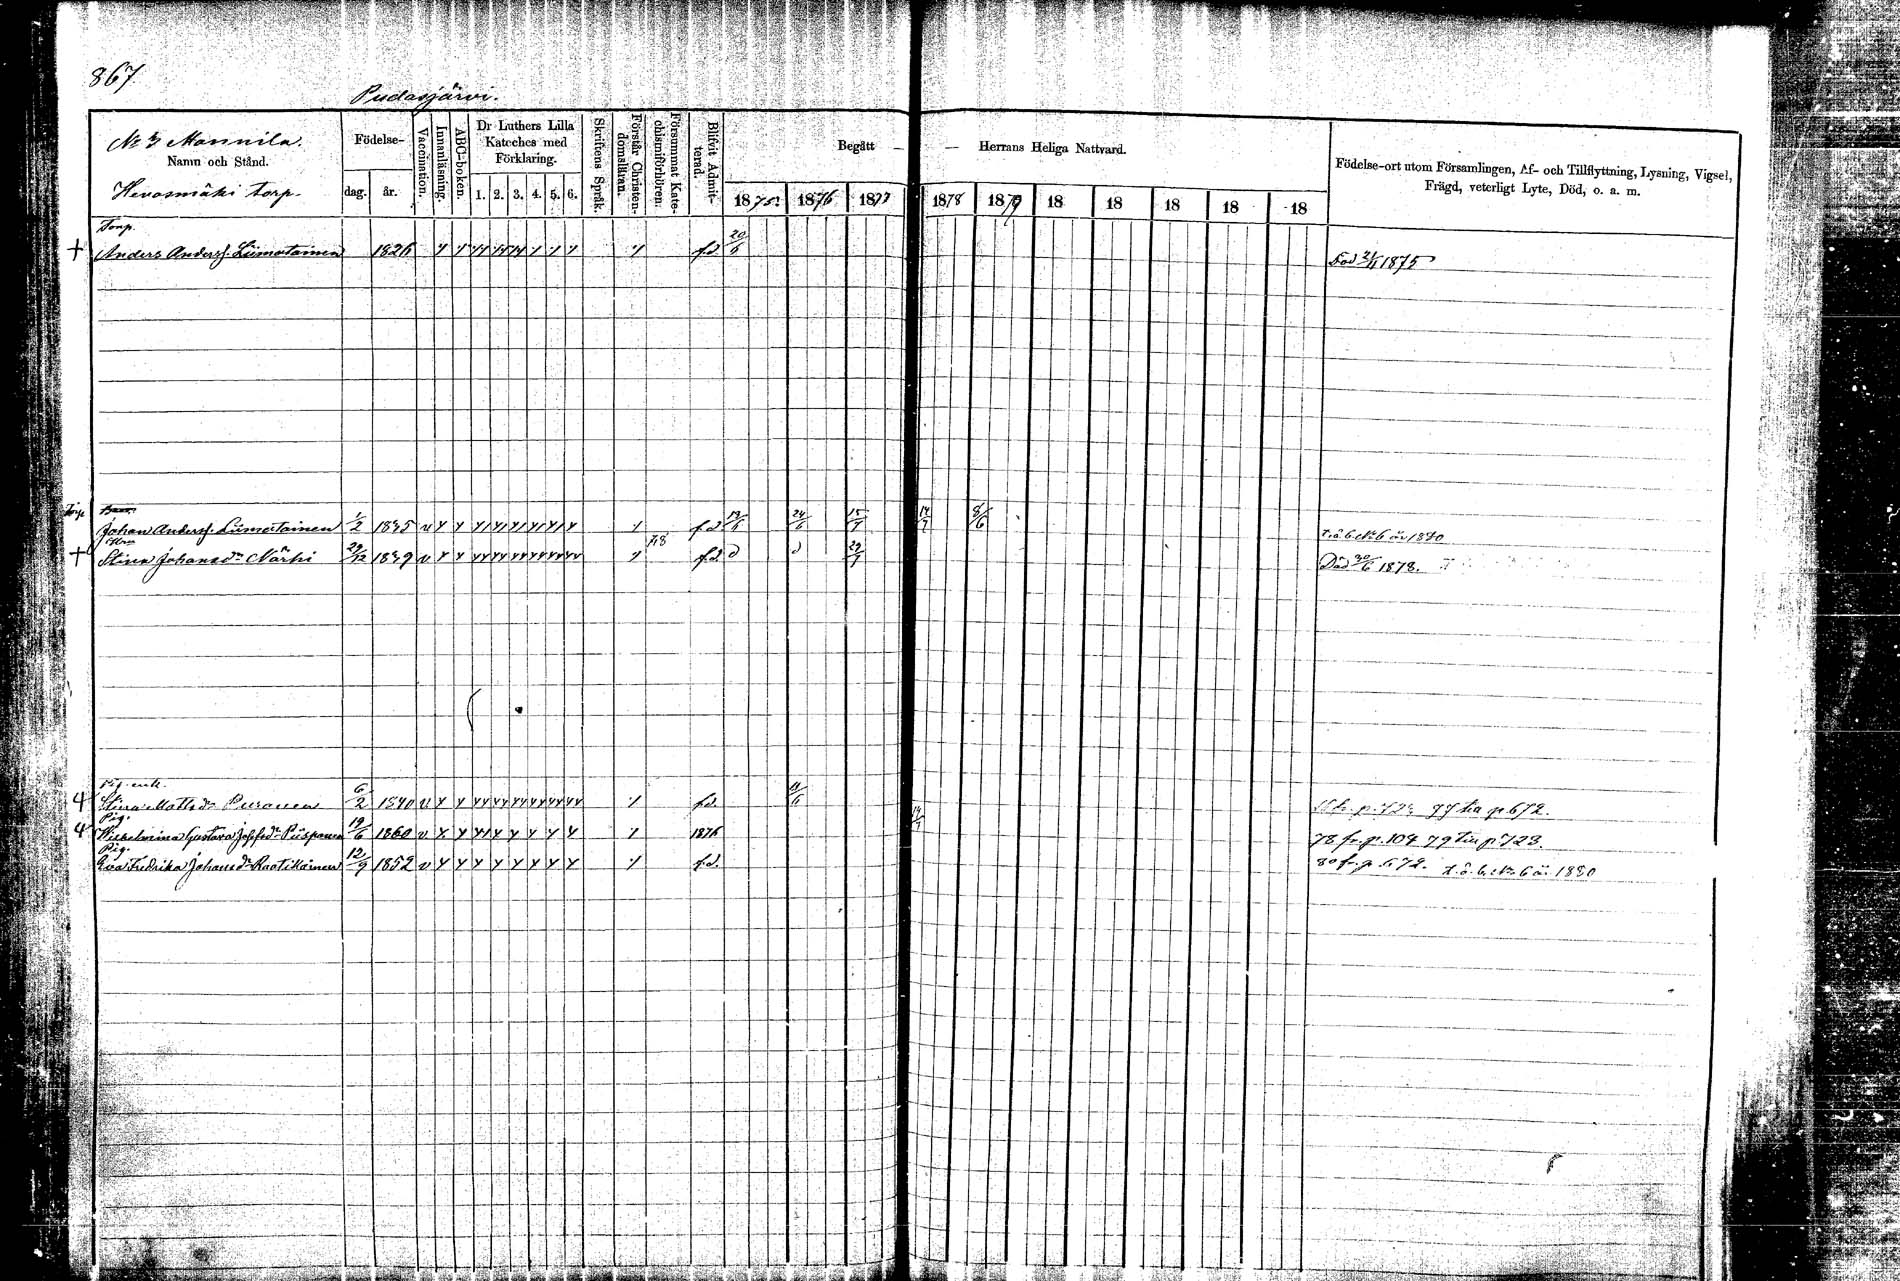 867
Pudasjärvi.
No 3 Mannila.
Namn och Stånd.
Hevosmäki torp.
Födelse-
dag. år.
Vaccination.
Innanläsning.
ABC-boken.
Dr Luthers Lilla
Kateches med
Förklaring.
1. 2. 3. 4. 5. 6.
Skriftens Språk.
Förstår Christen-
domsläran.
Försummat Kate-
chismiförhören.
Blifvit Admit-
terad.
Begått — — Herrans Heliga Nattvard.
1875 1876 1877 1878 1879 18 18 18 18 18
Födelse-ort utom Församlingen, Af- och Tillflyttning, Lysning, Vigsel,
Frägd, veterligt Lyte, Död, o. a. m.
Torp.
+ Anders Andersf. Liimatainen 1826 f.d. 20/6 Död 21/11 1875
Torp.
Johan Andersf. Liimatainen 1/2 1845 v f.d. 24/6 15/7 14/7 8/6 t.å.b. No 6 år 1880
+ Stina Johansdr Närhi 29/12 1849 v 78 f.d. 29/7 Död 30/6 1878.
Pig. enk.
Stina Mattsdr Puranen 6/2 1840 v f.d. 77 till p. 672.
Pig.
Vilhelmina Gustava Josefsdr Piispanen 19/6 1860 v 1876 14/7 78 fr. p. 104 79 till p. 723.
Pig.
Eva Fredrika Johansdr Raatikainen 12/9 1852 v f.d. 80 fr. p. 672. t.å.b. No 6 år 1880